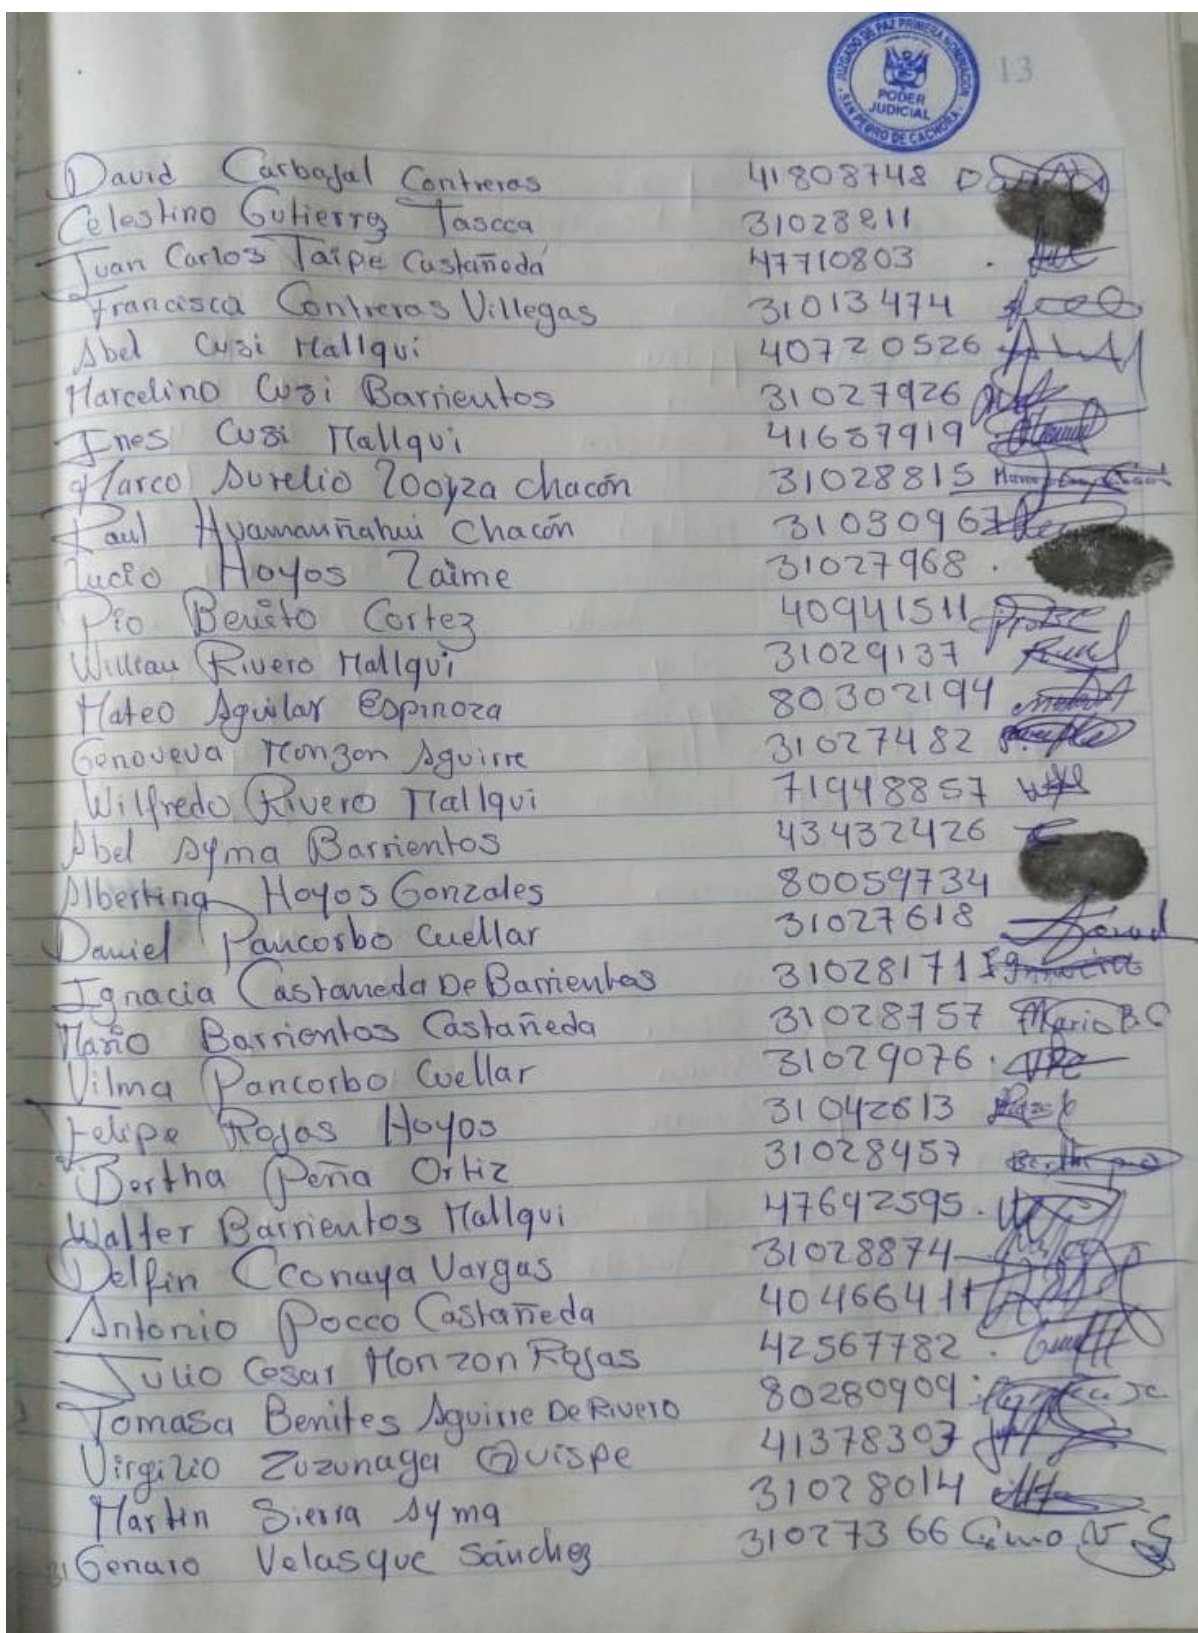 JUZGADO DE PAZ PRIMERA NOMINACION
PODER
JUDICIAL
SAN PEDRO DE CACHORA
13
David Carbajal Contreras 41808748
Celestino Gutierrez Tascca 31028211
Juan Carlos Taipe Castañeda 47710803
Francisca Contreras Villegas 31013474
Abel Cusi Mallqui 40720526
Marcelino Cusi Barrientos 31027926
Ines Cusi Mallqui 41687919
Marco Aurelio Loayza Chacón 31028815
Raul Huamanñahui Chacón 31030967
Lucio Hoyos Laime 31027968
Pio Benito Cortez 40941511
William Rivero Mallqui 31029137
Mateo Aguilar Espinoza 80302194
Genoveva Monzon Aguirre 31027482
Wilfredo Rivero Mallqui 71948857
Abel Ayma Barrientos 43432426
Albertina Hoyos Gonzales 80059734
Daniel Pancorbo Cuellar 31027618
Ignacia Castañeda De Barrientos 31028171 Ignacia
Mario Barrientos Castañeda 31028757 Mario B.C
Vilma Pancorbo Cuellar 31029076
Felipe Rojas Hoyos 31042613
Bertha Peña Ortiz 31028457
Walter Barrientos Mallqui 47692595
Delfin Cconaya Vargas 31028874
Antonio Pocco Castañeda 40466411
Julio Cesar Monzon Rojas 42567782
Tomasa Benites Aguirre De Rivero 80280909
Virgilio Zuzunaga Quispe 41378303
Martin Sierra Ayma 31028014
31 Genaro Velasque Sánchez 31027366